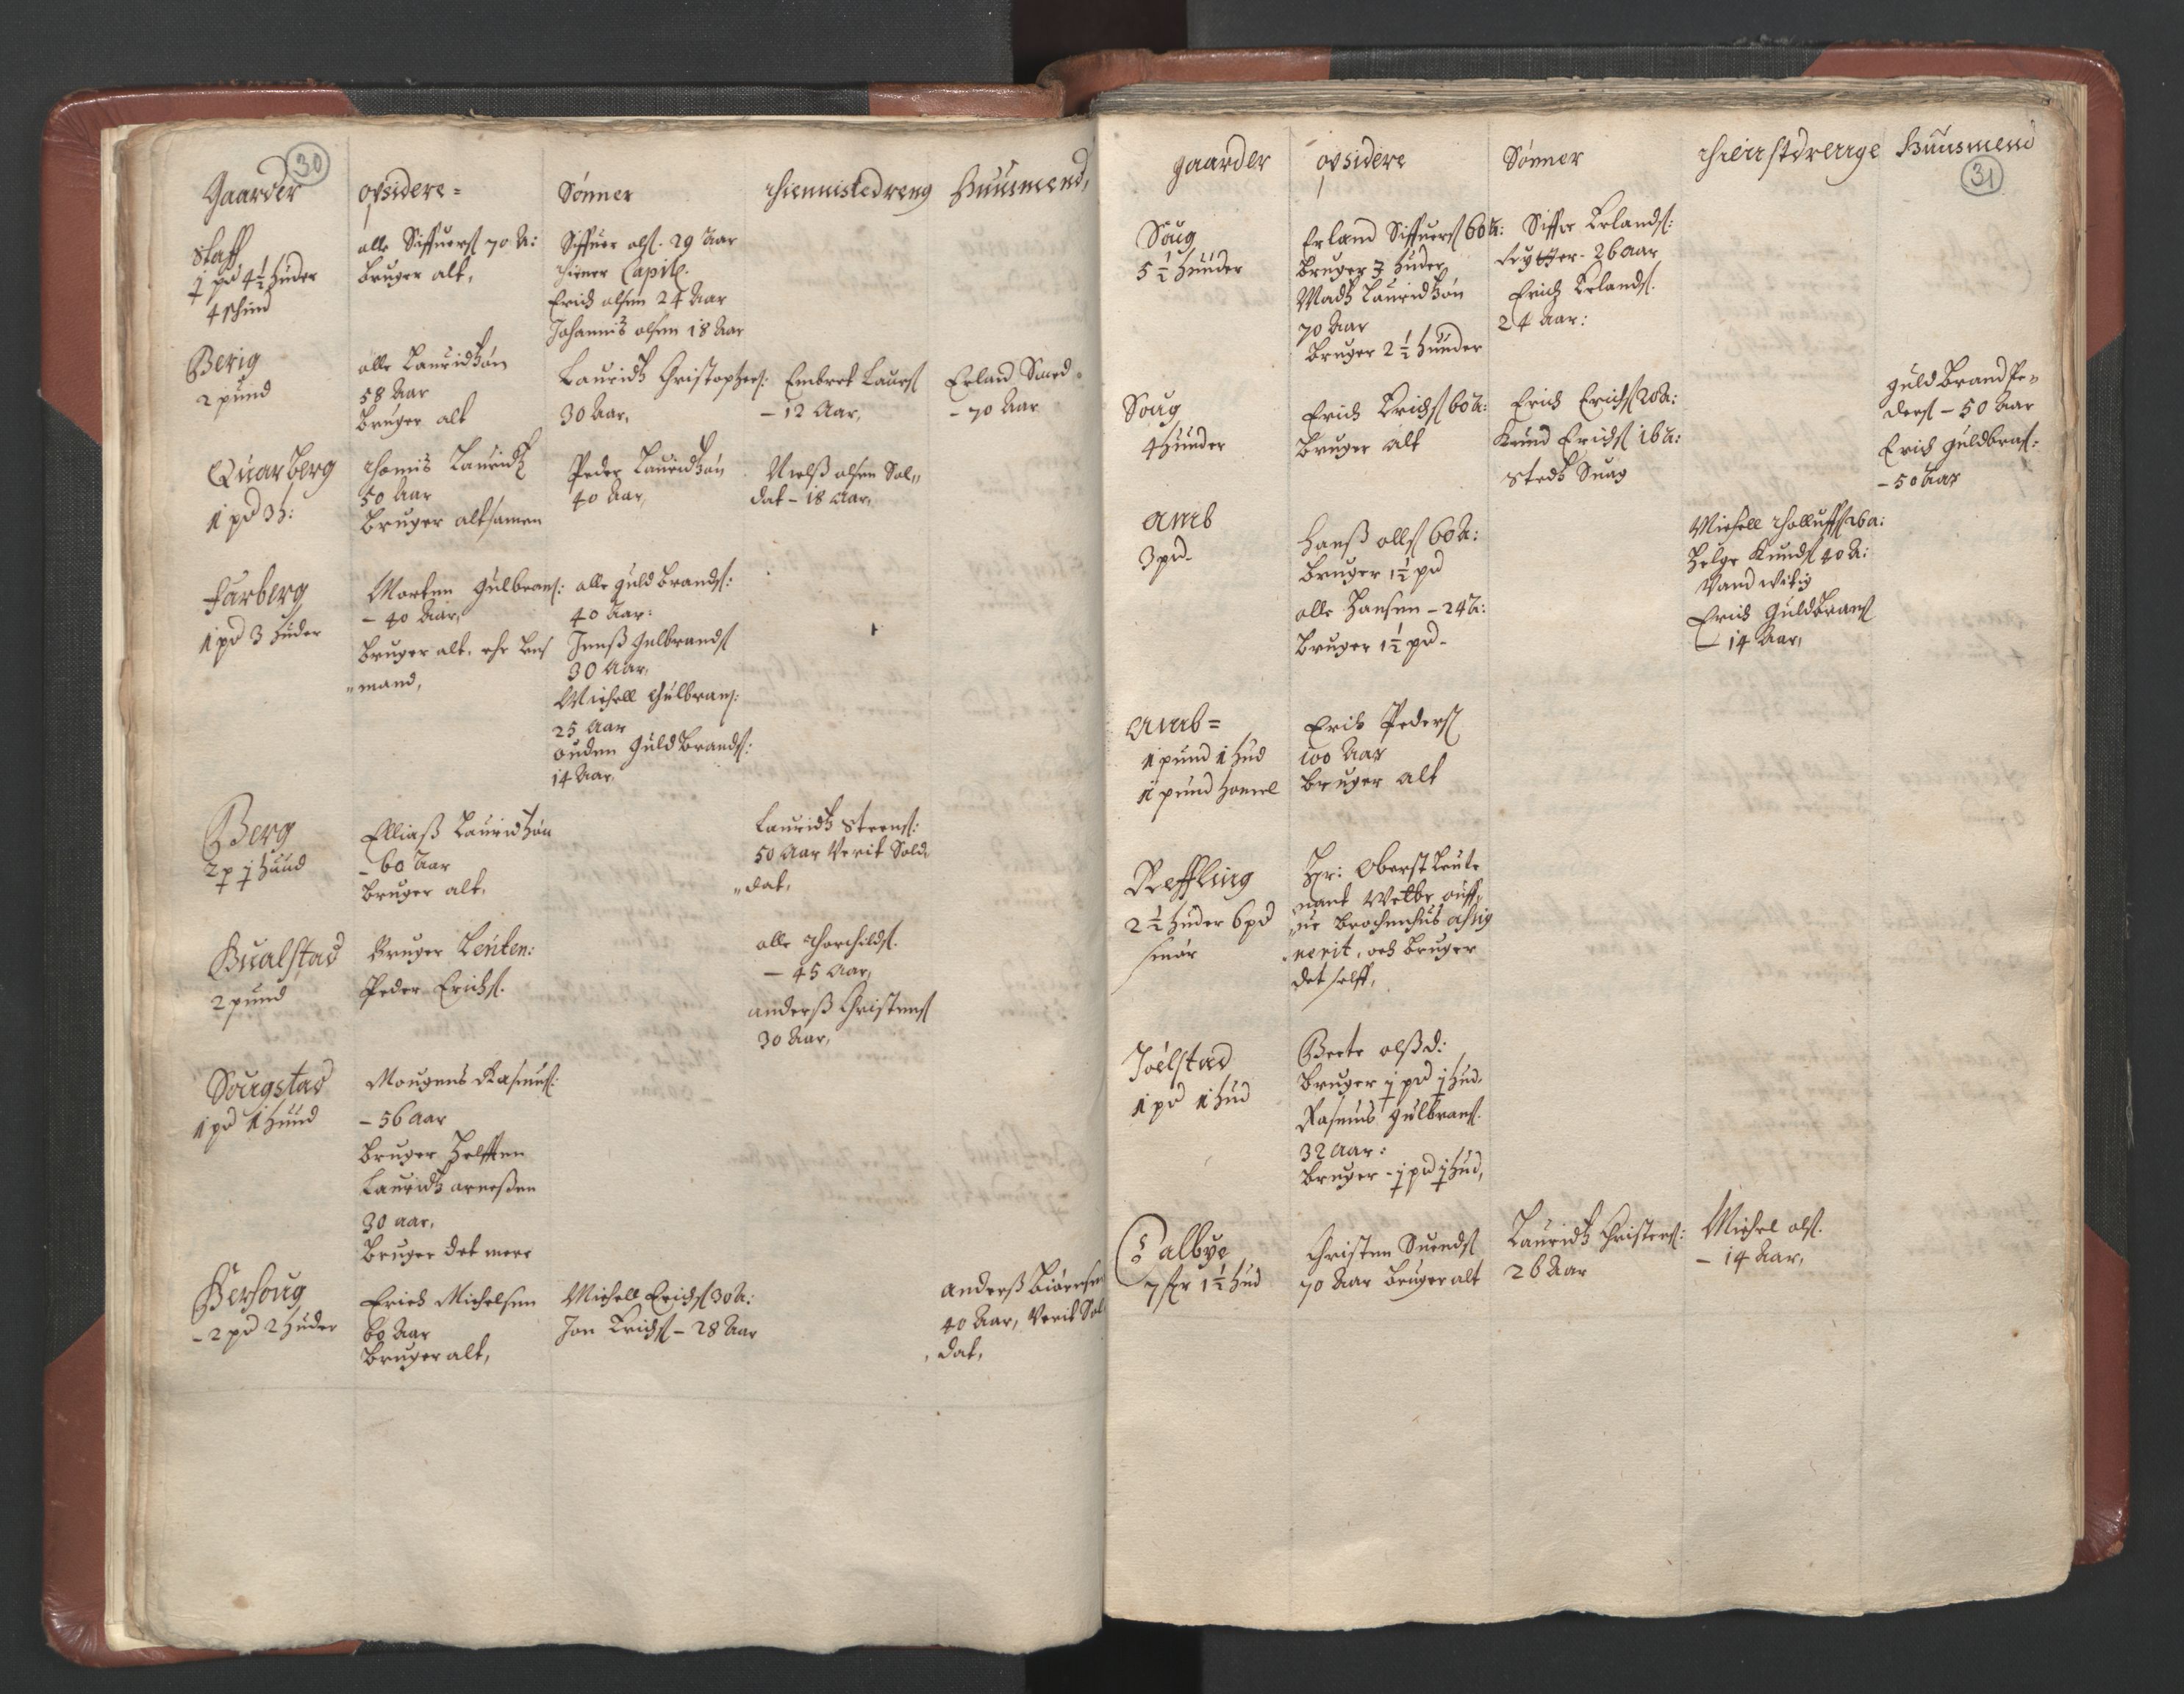 30
Gaarder
opsidere =
Sønner
Thiennistedreng
Huusmend,
Staff
1 pd 4½ Huder
4 skind
olle Siffuers 70 A:
bruger alt,
Siffuer ols. 29 Aar
thiener Capit.
Erich olsen 24 Aar
Johannis olsen 18 Aar
Berig
2 pund
olle Lauridtzøn
58 Aar
bruger alt
Lauridtz Christophers:
30 Aar,
Embret Laurs
- 12 Aar,
Erland Smed
- 70 Aar
Quarberg
1 pd 3 h:
Thomis Lauridtz
50 Aar
bruger altsamen
Peder Lauridtzøn
40 Aar,
Nielß olsen Sol„
dat - 18 Aar,
Farberg
1 pd 3 huder
Morten Gulbrans:
- 40 Aar,
bruger alt, ehr
„mand,
olle guldbrands:
40 Aar:
Jenß Gulbrands
30 Aar,
Michell Gulbrans:
25 Aar
ouden Guldbrands:
14 Aar,
Berg
2 p 1 huud
Elliaß Lauridtzøn
- 60 Aar
bruger alt,
Lauridtz Steens:
50 Aar Verit Sold
„dat,
Bualstad
2 pund
Bruger Leuten:
Peder Erichs.
olle Thorchilds.
- 45 Aar,
anderß Christens
30 Aar,
Sougstad
1 pd 1 huud
Mougens Rasmus:
- 56 Aar
bruger helfften
Lauridtz arneßen
30 aar,
bruger det mere
Bersoug
- 2 pd 2 huder
Erich Michelsen
60 Aar
bruger alt,
Michell Erichs 30 A:
Jon Erichs - 28 Aar
anderß Biørnsen
40 Aar, Verit Sol
dat,
31
gaarder
opsidere
Sønner
Thienstdrenge
Huusmend
Soug
5½ huuder
Erland Siffuers 60 A:
bruger 3 huder
Madtz Lauridtzøn
70 Aar
bruger 2½ huuder
Siffr Erlands:
rytter - 26 aar
Erich Erlands.
24 Aar:
Soug
4 huuder
Erich Erichs 60 A:
bruger alt
Erich Erichs 20 A:
Knud Erichs 16 A:
stedtz Suag
guldbrand Pe„
ders - 50 Aar
Erich guldbras:
- 50 Aar
Amb
3 pd -
Hanß olls 60 A:
bruger 1½ pd
olle Hansen - 24 A:
bruger 1½ pd -
Michell Tholluffs 26 a:
Helge Knuds 40 A:
Vand witig
Erich Guldbrans
- 14 Aar,
Amb =
1 pund 1 hud
1 pund
Erich Peders
100 Aar
bruger alt
Reffling
2½ huder 6 pd
smør
Hr: Oberst Leute
nant Wetbr.
Brochenhus
nerit, och bruger
det selff,
Joelstad
1 pd 1 hud
Berte olßd:
bruger 1 pd 1 hud.
Rasmus gulbrans.
32 Aar:
bruger - 1 pd 1 hud,
Calbye
7 1½ hud
Christen Suends
70 Aar bruger alt
Lauridtz Christens:
26 Aar
Michel ols.
- 14 Aar,